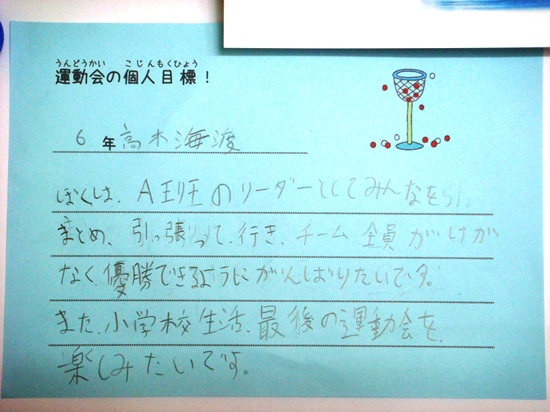 うんどうかい こじんもくひょう
運動会の個人目標！
6年 高木海渡
ぼくは、A班のリーダーとしてみんなを引っ
まとめ、引っ張って、行き、チーム全員がけが
なく、優勝できるようにがんばりたいです。
また、小学校生活、最後の運動会を
楽しみたいです。